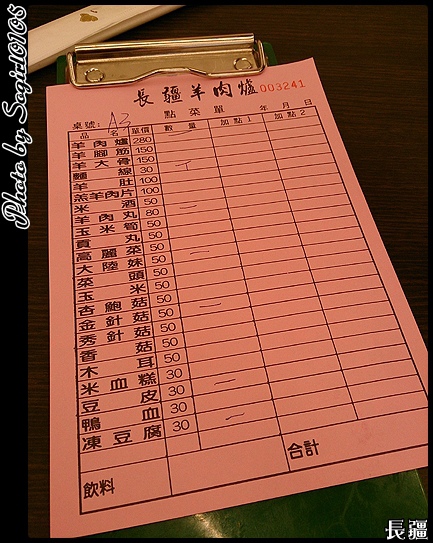 Photo by Sogirl0105
長疆羊肉爐 003241
點菜單
桌號: A3 年 月 日
品名 單價 數量 加點1 加點2
羊肉爐 280
羊腳筋 150
羊大骨 150
麵線 30
羊肚 100
羔羊肉片 100
米酒 50
羊肉丸 80
玉米筍 50
貢丸 50
高麗菜 50
大陸妹 50
菜頭 50
玉米 50
杏鮑菇 50
金針菇 50
秀針菇 50
香菇 50
木耳 50
米血糕 30
豆皮 30
鴨血 30
凍豆腐 30
合計
飲料
長疆